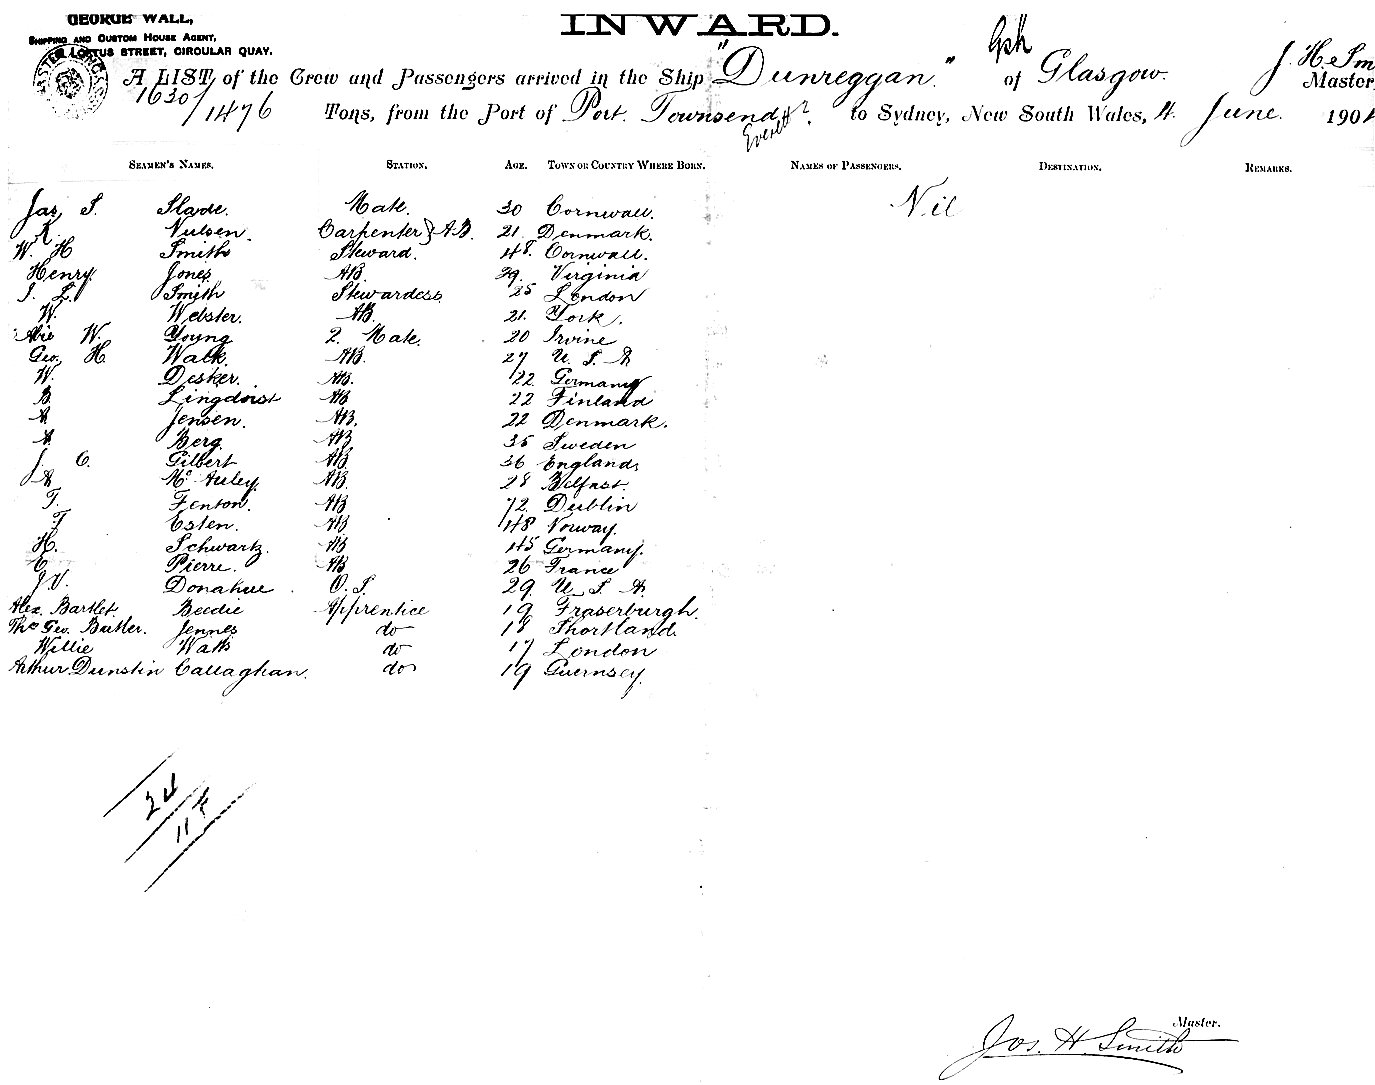 GEORGE WALL,
SHIPPING AND CUSTOM HOUSE AGENT,
LOFTUS STREET, CIRCULAR QUAY.
INWARD.
A LIST of the Crew and Passengers arrived in the Ship "Dunreggan." of Glasgow. J. H. Sm Master,
1630/1476 Tons, from the Port of Port Townsend Everett? to Sydney, New South Wales, 4. June. 1904
SEAMEN'S NAMES. STATION. AGE. TOWN OR COUNTRY WHERE BORN. NAMES OF PASSENGERS. DESTINATION. REMARKS.
Jas, S. Slade. Mate. 30 Cornwall. Nil
K. Nulsen. Carpenter } AB. 21. Denmark.
W. H Smith Steward. 48. Cornwall.
Henry Jones AB. 29. Virginia
L. Smith Stewardess 25 London
W. Webster. AB. 21. York.
W. Young 2. Mate. 20 Irvine
Geo, H. Walk AB. 27 U. S. A
W. Desker. AB. 22 Germany
B. Lingdvist AB 22 Finland
A Jensen. AB. 22 Denmark.
A Berg. AB 35 Sweden
J C. Gilbert AB 36 England
A McAuley. AB. 28 Belfast.
T. Fenton. AB 72. Dublin
T Esten. AB 48 Norway.
H. Schwartz. AB 45 Germany.
E Pierre. AB 26 France
J.V. Donahue O.S. 29. U. S. A.
Alex. Bartlet Beedie Apprentice 19 Fraserburgh.
Thos Geo. Butler. Jennes do 18 Shortland.
Willie Watts do 17 London
Arthur Dunstin Callaghan. do 19 Guernsey.
24
114
Master.
Jos. H. Smith